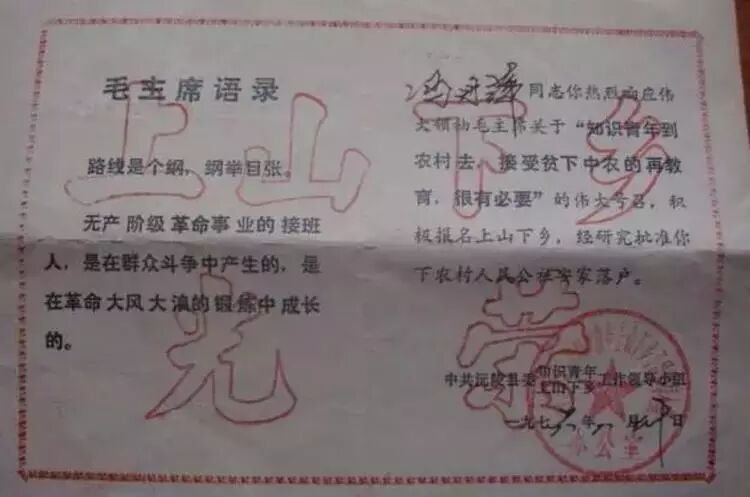 上山下乡
光荣
毛主席语录
路线是个纲，纲举目张。
无产阶级革命事业的接班
人，是在群众斗争中产生的，是
在革命大风大浪的锻炼中成长
的。
冯
同志你热烈响应伟
大领袖毛主席关于“知识青年到
农村去，接受贫下中农的再教
育，很有必要”的伟大号召，积
极报名上山下乡，经研究批准你
下农村人民公社安家落户。
中共沅陵县委知识青年上山下乡工作领导小组
一九七 年 月 日
办公室